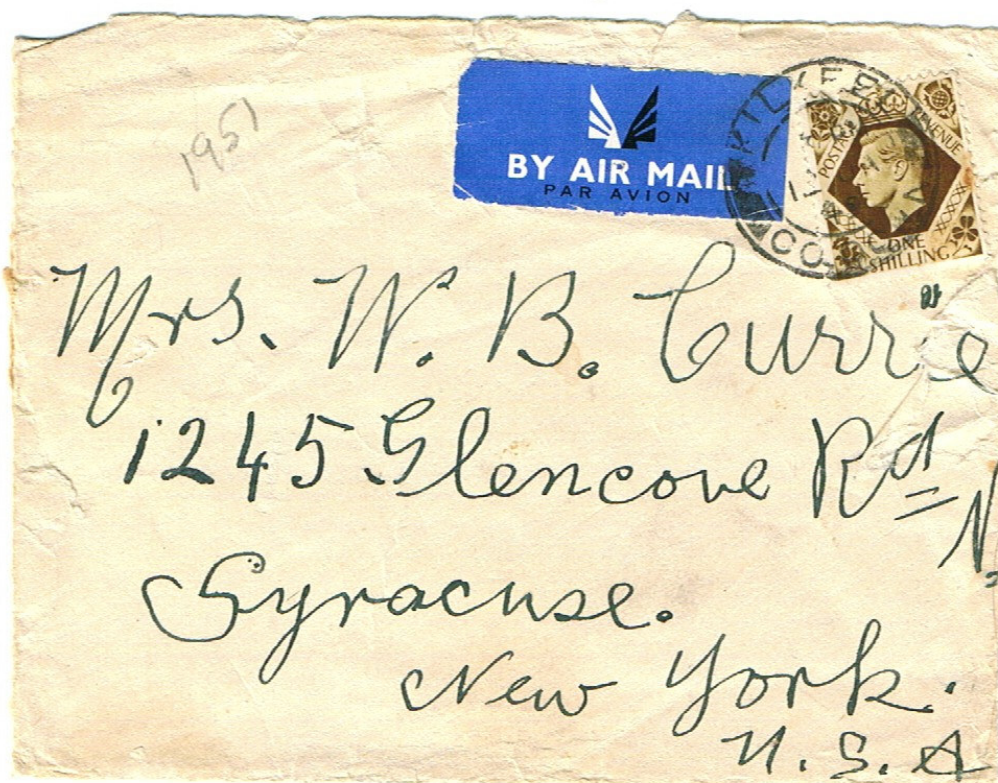 1951
BY AIR MAIL
PAR AVION
KILKEEL
CO. DOWN
POSTAGE REVENUE
ONE
SHILLING
Mrs. W. B. Currie
1245 Glencove Rd N.
Syracuse.
New York.
U. S. A